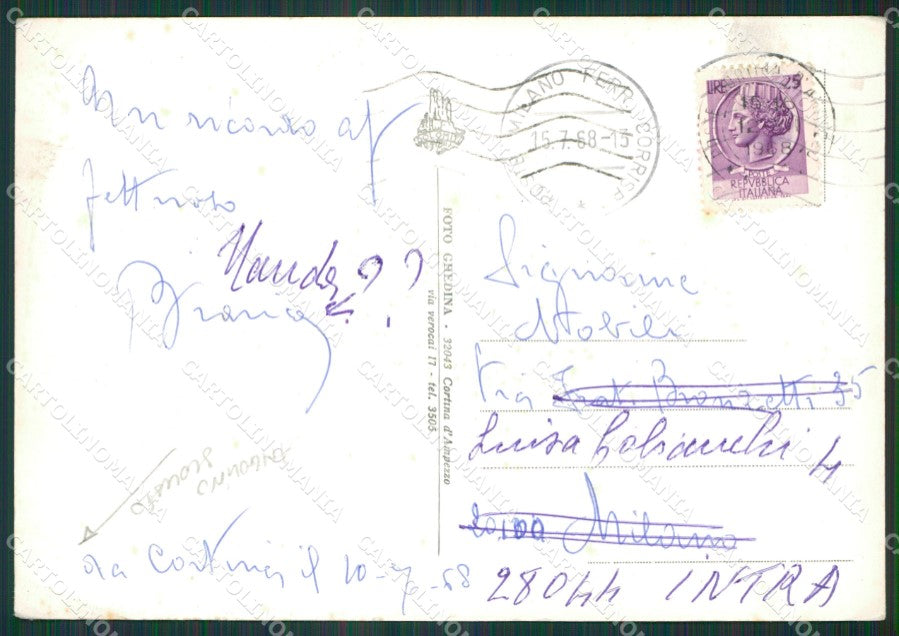 un ricordo af
fettuoso
Wanda??
Bianca
da Cortina il 10-7-68
FOTO GHEDINA - 32043 Cortina d'Ampezzo
via verocai 17 - tel. 3505
MILANO FERR. CORRISP
15.7.68-13
LIRE 25
1968
POSTE
REPVBBLICA
ITALIANA
Signorine
Nobili
Via Frat. Bronzetti 35
Luisa 4
20100 Milano
28044 INTRA
CARTOLINOMANIA